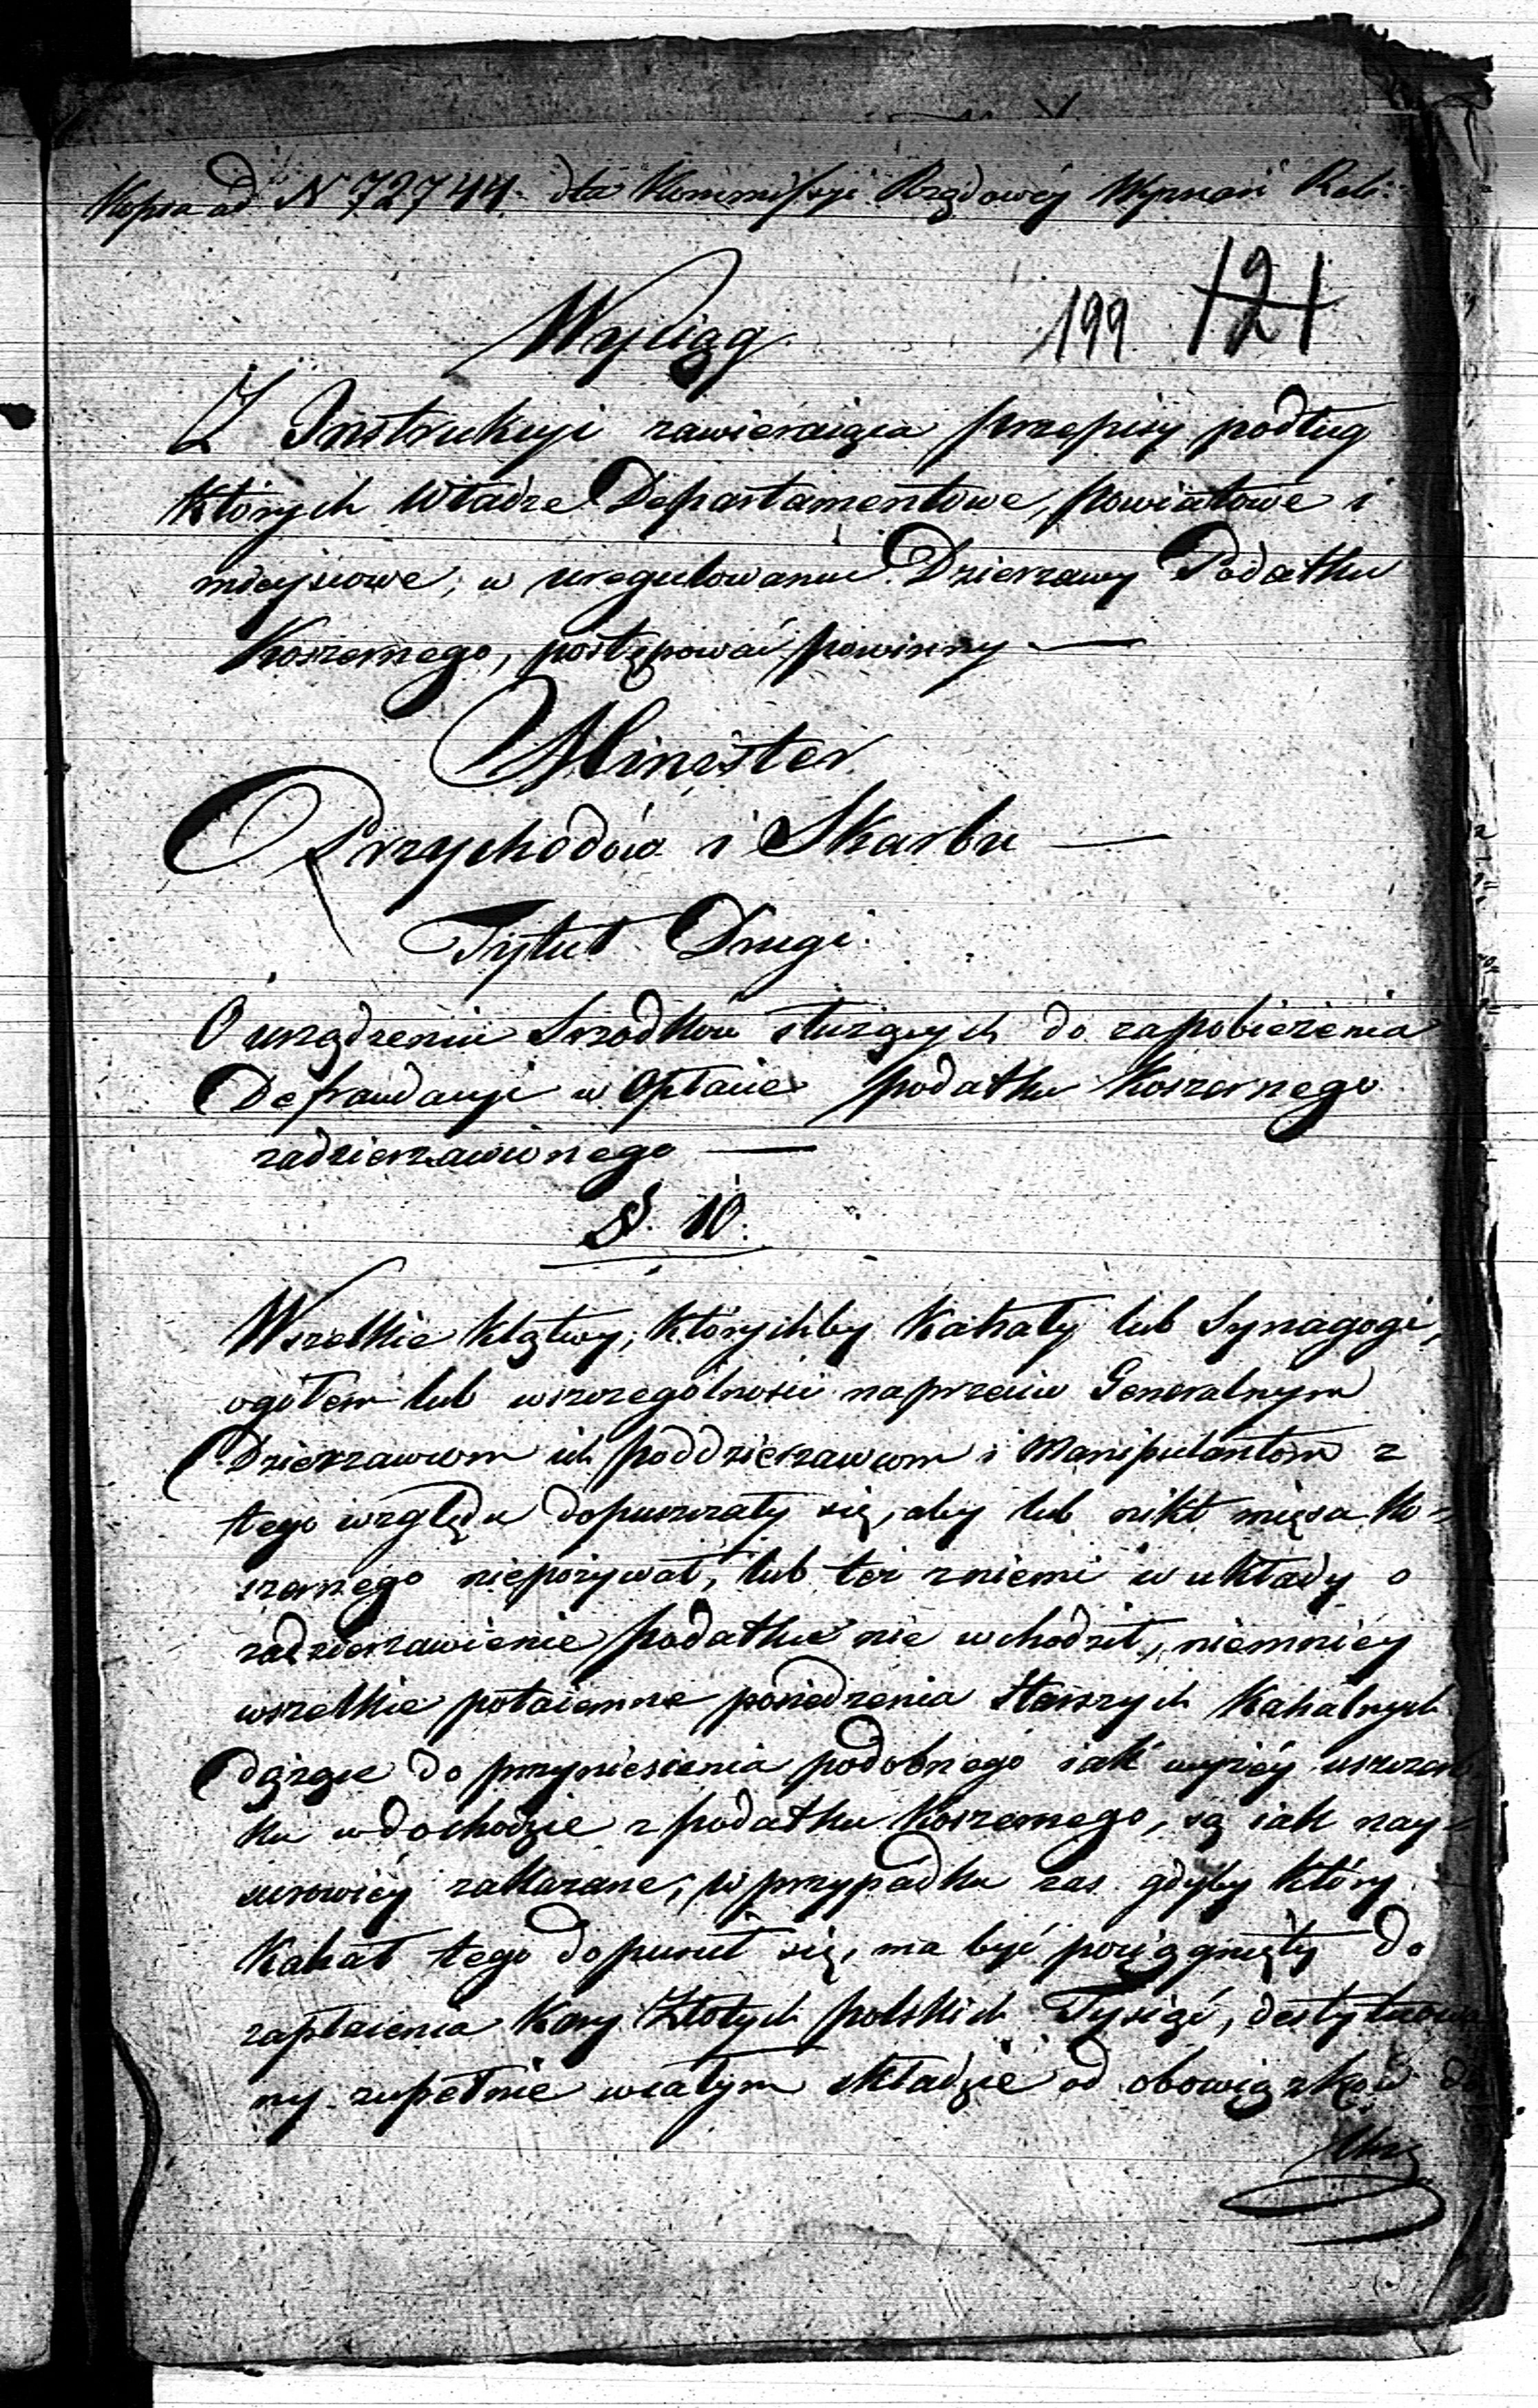 Kopia ad N 72744. dla Kommissyi Rządowéy Wyznań Reli:
Wyciąg
199 121
Z Instrukcyi zawieraiąca przepisy podług
których Władze Departamentowe, powiatowe i
mieyscowe, w uregulowaniu Dzierzawy Podatku
Koszernego, postępować powinny —
Minister
Przychodów i Skarbu —
Tytuł Drugi.
O urządzeniu Srzodków służących do zapobieżenia
Defraudacyi w Opłacie podatku Koszernego
zadzierzawionego —
§. 10.
Wszelkie klątwy, którychby Kahały lub Synagogi,
ogółem lub wszczególności naprzeciw Generalnym
Dzierzawcom ich poddzierzawcom i Manipulantom z
tego względu dopuszczały się, aby lub nikt mięsa Ko=
szernego niepożywał, lub też zniemi w układy o
zadzierzawienie podatku nie wchodził, niemniéy
wszelkie potaiemne posiedzenia Starszych Kahalnych
dążące do przyniesienia podobnego iak wyżéy uszczerb
ku wdochodzie z podatku Koszernego, są iak nay=
surowiéy zakazane, w przypadku zas gdyby który
Kahał tego dopuścił się, ma być pociągnięty do
zapłacenia Kary Złotych polskich Tysiąć, destytuowa
ny zupełnie wcałym składzie od obowiązków